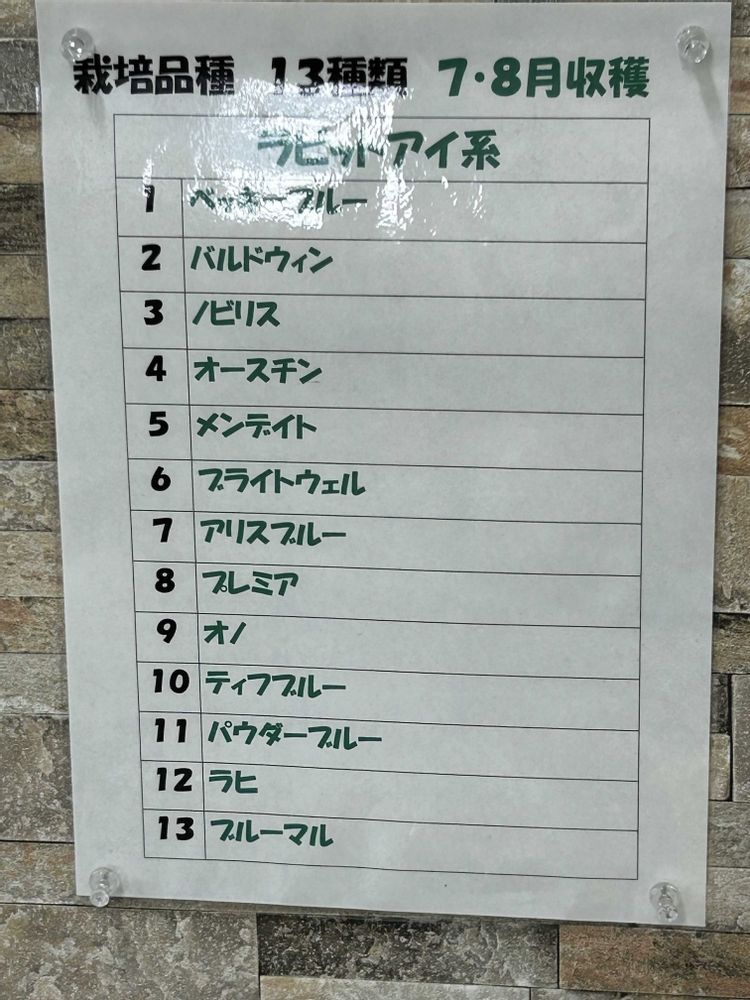 栽培品種 13種類 7・8月収穫
ラビットアイ系
1 ベッキーブルー
2 バルドウィン
3 ノビリス
4 オースチン
5 メンデイト
6 ブライトウェル
7 アリスブルー
8 プレミア
9 オノ
10 ティフブルー
11 パウダーブルー
12 ラヒ
13 ブルーマル